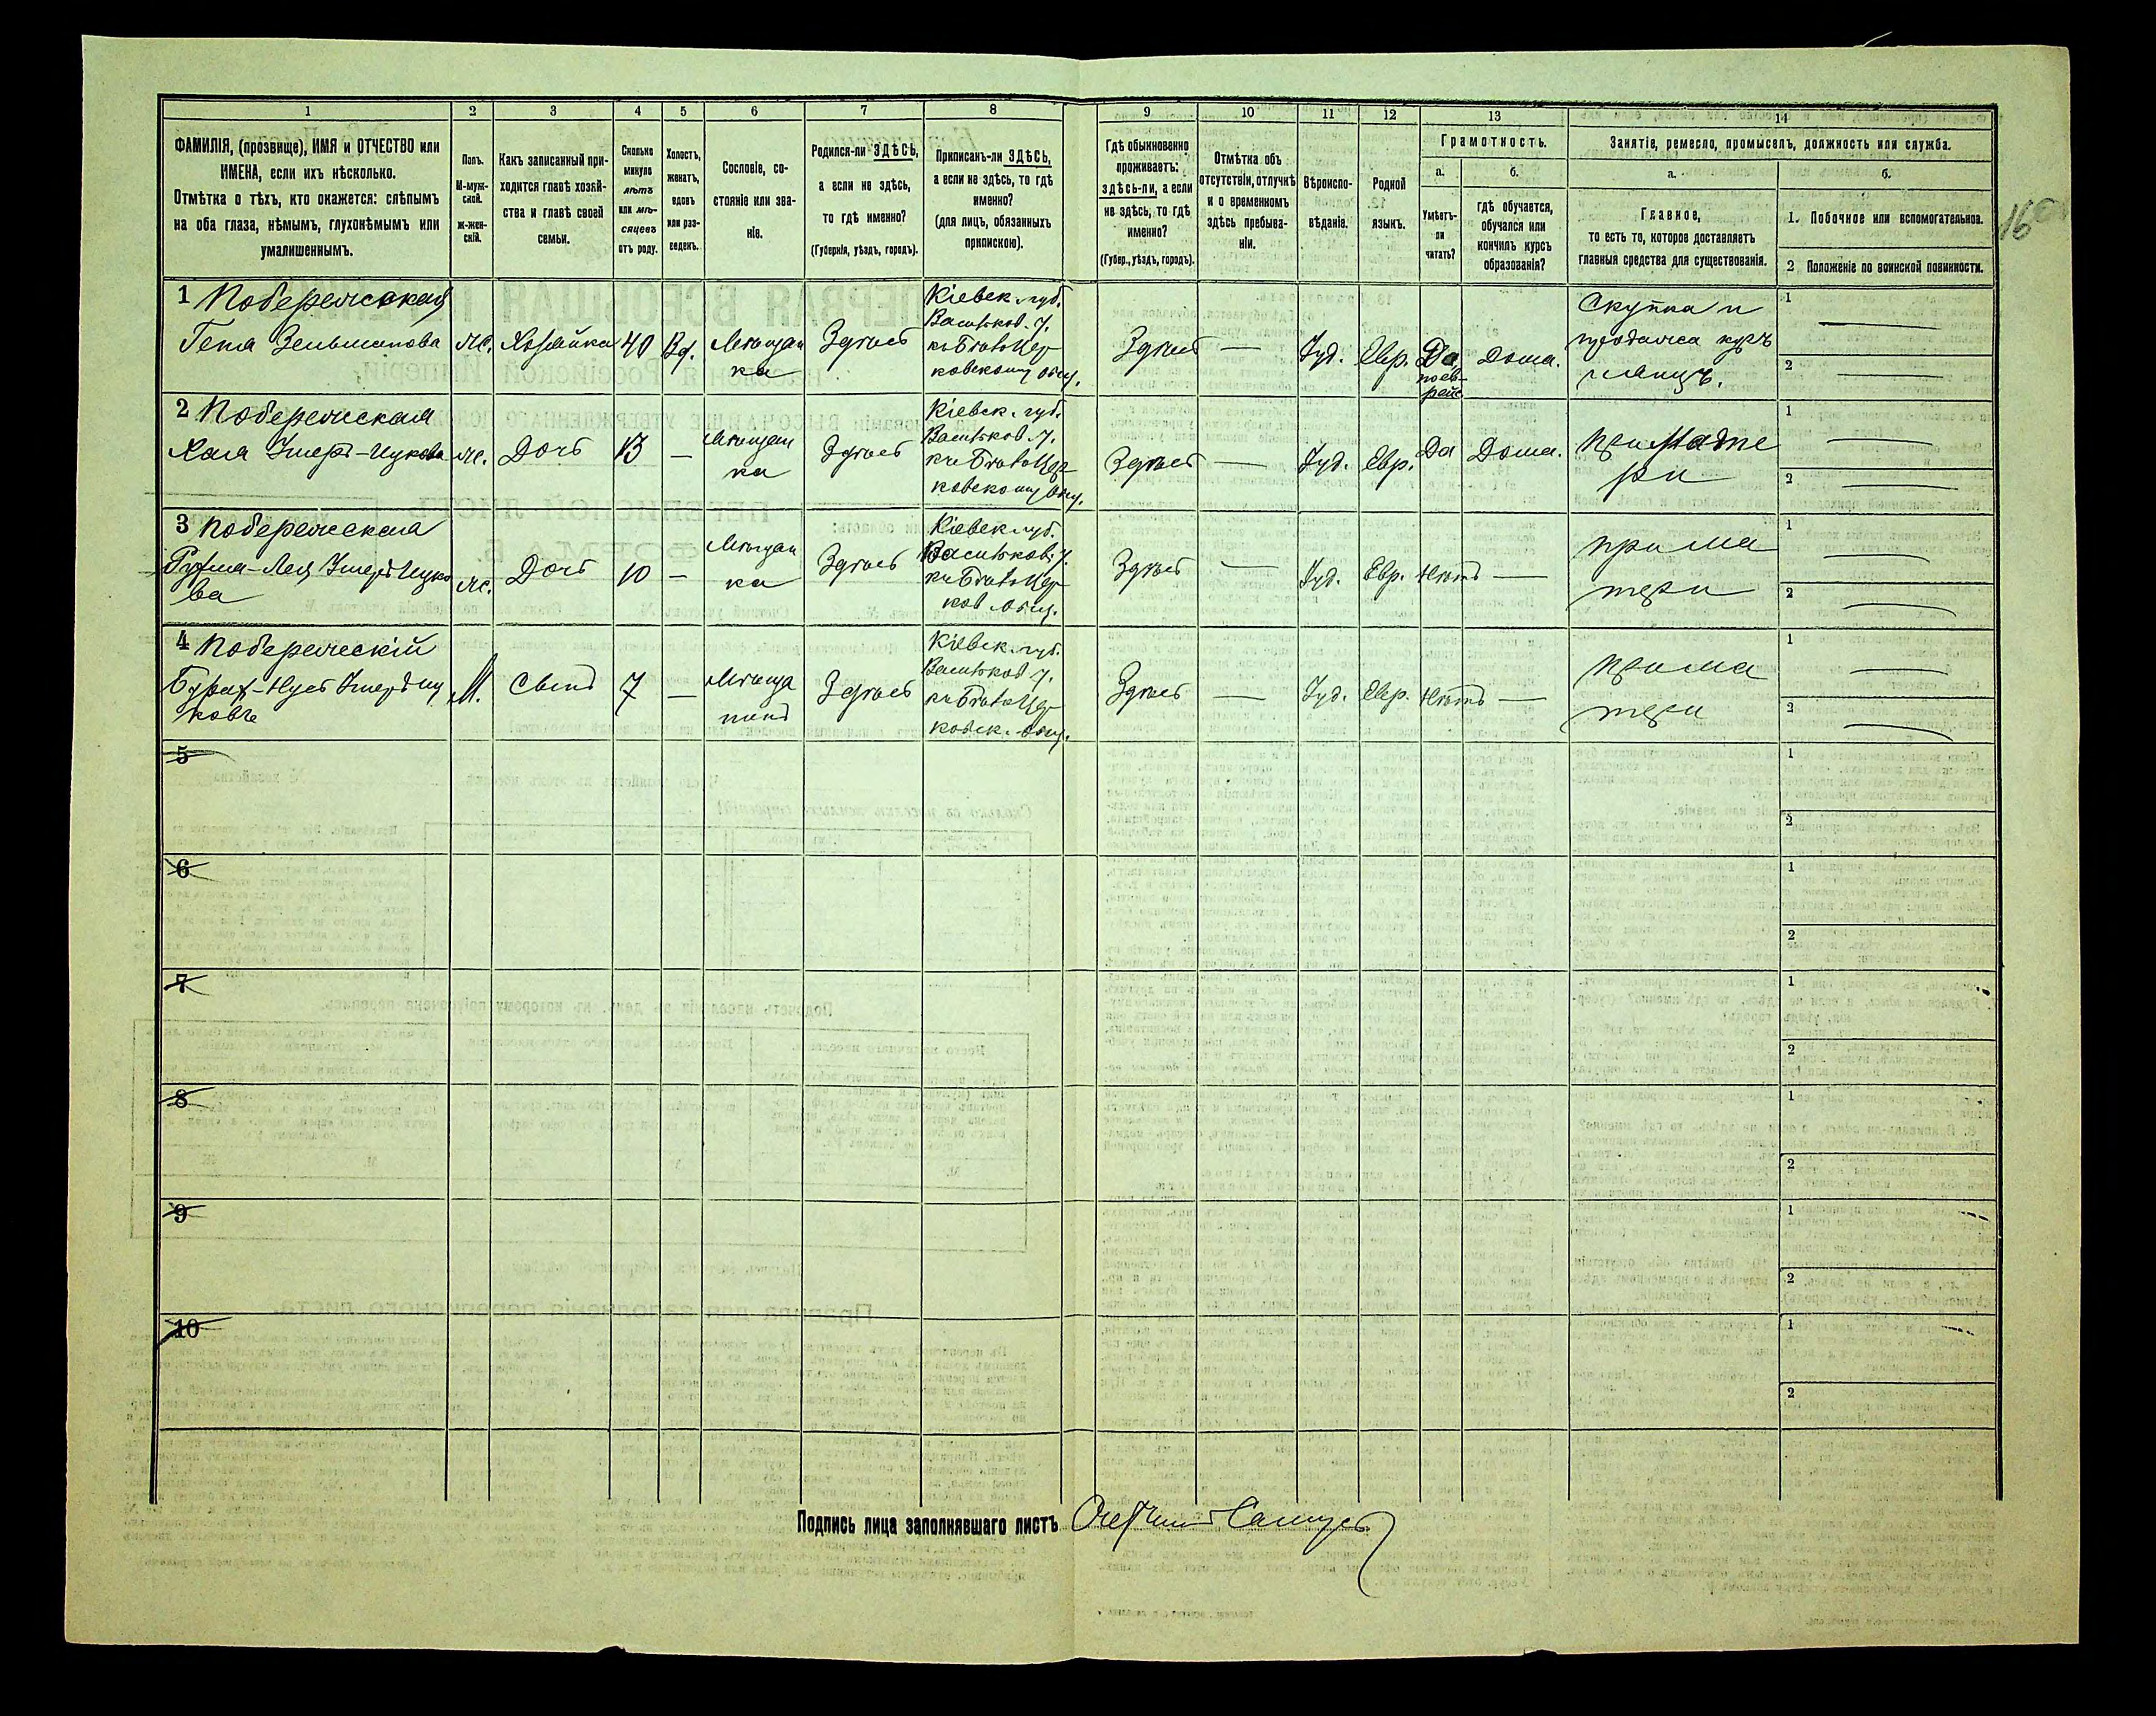 1 2 3 4 5 6 7 8 9 10 11 12 13 14
ФАМИЛІЯ, (прозвище), ИМЯ и ОТЧЕСТВО или
ИМЕНА, если ихъ нѣсколько.
Отмѣтка о тѣхъ, кто окажется: слѣпымъ
на оба глаза, нѣмымъ, глухонѣмымъ или
умалишеннымъ.
Полъ.
М-муж-
ской.
Ж-жен-
скій.
Какъ записанный при-
ходится главѣ хозяй-
ства и главѣ своей
семьи.
Сколько
минуло
лѣтъ
или мѣ-
сяцевъ
отъ роду.
Холостъ,
женатъ,
вдовъ
или раз-
веденъ.
Сословіе, со-
стояніе или зва-
ніе.
Родился-ли ЗДѢСЬ,
а если не здѣсь,
то гдѣ именно?
(Губернія, уѣздъ, городъ).
Приписанъ-ли ЗДѢСЬ,
а если не здѣсь, то гдѣ
именно?
(для лицъ, обязанныхъ
припискою).
Гдѣ обыкновенно
проживаетъ:
здѣсь-ли, а если
не здѣсь, то гдѣ
именно?
(Губер., уѣздъ, городъ).
Отмѣтка объ
отсутствіи, отлучкѣ
и о временномъ
здѣсь пребыва-
ніи.
Вѣроиспо-
вѣданіе.
Родной
языкъ.
Грамотность.
а.
Умѣетъ-
ли
читать?
б.
гдѣ обучается,
обучался или
кончилъ курсъ
образованія?
Занятіе, ремесло, промыселъ, должность или служба.
а.
Главное,
то есть то, которое доставляетъ
главныя средства для существованія.
б.
1. Побочное или вспомогательное.
2 Положеніе по воинской повинности.
16
1 Побережская
Гета Зельмановa
ж.
Хозяйка
40
Вд.
Мѣщан
ка
Здѣсь
Кіевск. губ.
Васильков. у.
къ Бѣлоцер
ковскому общ.
Здѣсь
—
Іуд.
Евр.
Да,
по ев-
рейс
Дома.
Скупка и
продажа куръ
и яицъ.
1 —
2 —
2 Побережская
Хая
ж.
Дочь
13
—
Мѣщан
ка
Здѣсь
Кіевск. губ.
Васильков. у.
къ Бѣлоцер
ковскому общ.
Здѣсь
—
Іуд.
Евр.
Да
Дома.
При мате
ри
1 —
2 —
3 Побережская
ва
ж.
Дочь
10
—
Мѣщан
ка
Здѣсь
Кіевск. губ.
Васильков. у.
къ Бѣлоцер
ков. общ.
Здѣсь
—
Іуд.
Евр.
Нѣтъ
—
При ма
тери
1 —
2 —
4 Побережскій
ковъ
М.
Сынъ
7
—
Мѣща
нинъ
Здѣсь
Кіевск. губ.
Васильков. у.
къ Бѣлоцер
ковск. общ.
Здѣсь
—
Іуд.
Евр.
Нѣтъ
—
При ма
тери
1 —
2 —
5
1
2
6
1
2
7
1
2
8
1
2
9
1
2
10
1
2
Подпись лица заполнявшаго листъ